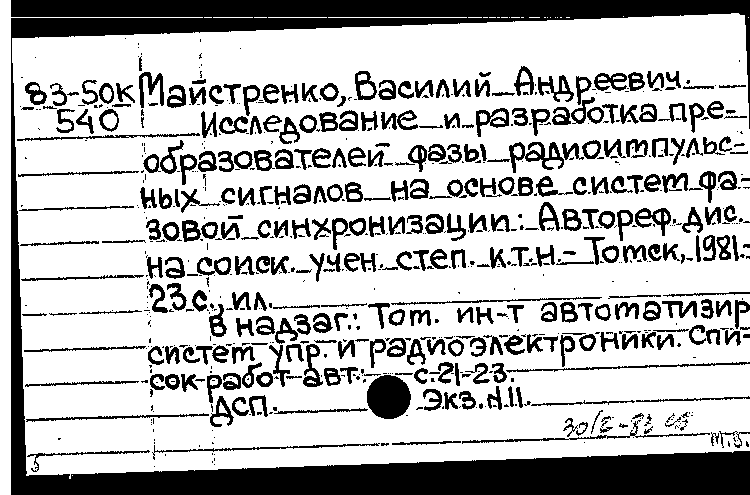 83-50к Майстренко, Василий Андреевич.
540 Исследование и разработка пре-
образователей фазы радиоимпульс-
ных сигналов на основе систем фа-
зовой синхронизации: Автореф. дис.
на соиск. учен. степ. к.т.н.- Томск, 1981.-
23с., ил.
В надзаг.: Том. ин-т автоматизир
систем упр. и радиоэлектроники. Спи-
сок работ авт.: с.21-23.
ДСП. Экз.N11.
5 М.З.